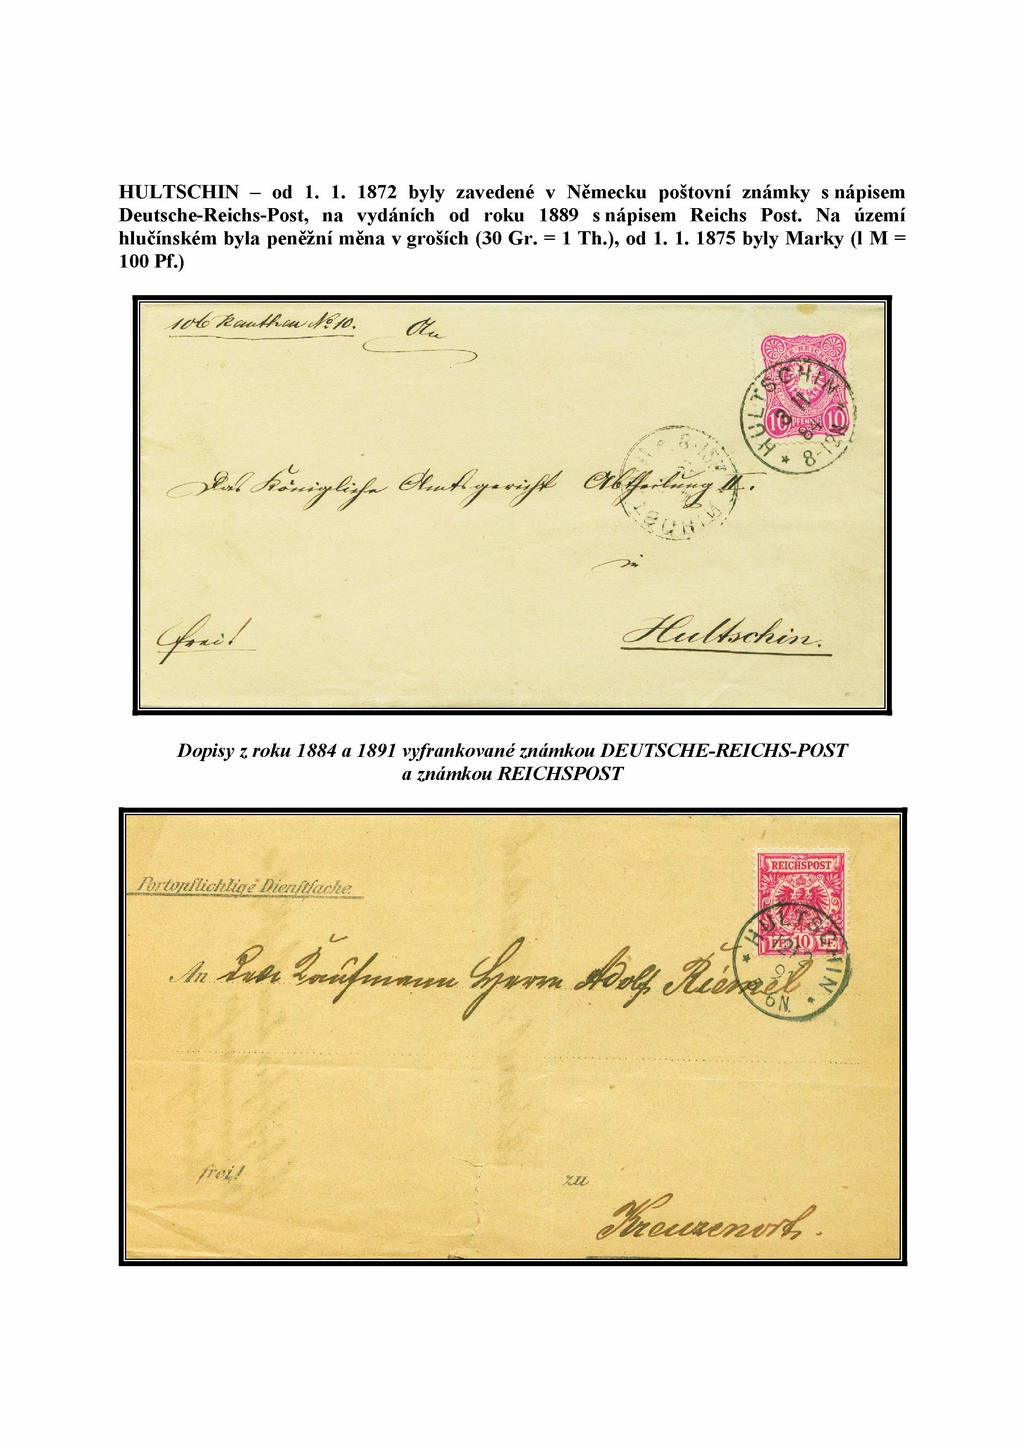 HULTSCHIN – od 1. 1. 1872 byly zavedené v Německu poštovní známky s nápisem
Deutsche-Reichs-Post, na vydáních od roku 1889 s nápisem Reichs Post. Na území
hlučínském byla peněžní měna v groších (30 Gr. = 1 Th.), od 1. 1. 1875 byly Marky (l M =
100 Pf.)
106 Kauthau No 10. An
HULTSCHIN
8 11
84
8-12V
10 PFENNIG 10
Das Königliche Amtsgericht Abtheilung II.
in
frei! Hultschin.
Dopisy z roku 1884 a 1891 vyfrankované známkou DEUTSCHE-REICHS-POST
a známkou REICHSPOST
REICHSPOST
Portopflichtige Dienstsache
PF 10 PF
HULTSCHIN
An den Kaufmann Herrn Adolf Riemel
frei! zu
Kreuzenort.